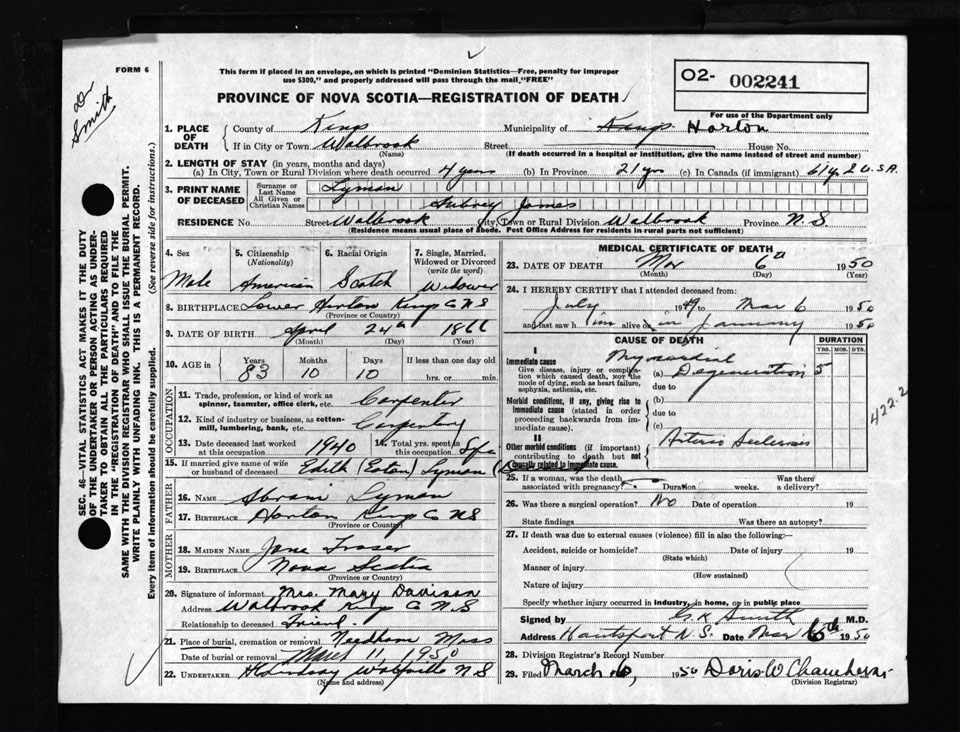 FORM 6
Dr Smith
This form if placed in an envelope, on which is printed "Dominion Statistics—Free, penalty for improper
use $300," and properly addressed will pass through the mail, "FREE"
O2- 002241
For use of the Department only
PROVINCE OF NOVA SCOTIA—REGISTRATION OF DEATH
1. PLACE OF DEATH County of Kings Municipality of Kings Horton
If in City or Town Walbrook Street House No.
(Name) (If death occurred in a hospital or institution, give the name instead of street and number)
2. LENGTH OF STAY (in years, months and days)
(a) In City, Town or Rural Division where death occurred 4 years (b) In Province 21 yrs (c) In Canada (if immigrant) 61 yrs U.S.A.
3. PRINT NAME OF DECEASED Surname or Last Name Lyman
All Given or Christian Names Aubrey James
RESIDENCE No. Street Walbrook City, Town or Rural Division Walbrook Province N.S.
(Residence means usual place of abode. Post Office Address for residents in rural parts not sufficient)
4. Sex 5. Citizenship (Nationality) 6. Racial Origin 7. Single, Married, Widowed or Divorced (write the word)
Male American Scotch Widower
8. BIRTHPLACE Lower Horton Kings Co N S
(Province or Country)
9. DATE OF BIRTH April 24th 1866
(Month) (Day) (Year)
10. AGE in Years Months Days If less than one day old
83 10 10 hrs. or min.
OCCUPATION
11. Trade, profession, or kind of work as spinner, teamster, office clerk, etc. Carpenter
12. Kind of industry or business, as cotton-mill, lumbering, bank, etc. Carpentry
13. Date deceased last worked at this occupation 1940 14. Total yrs. spent in this occupation
15. If married give name of wife or husband of deceased Edith (Eaton) Lyman
FATHER
16. NAME Abram Lyman
17. BIRTHPLACE Horton Kings Co N S
(Province or Country)
MOTHER
18. MAIDEN NAME Jane Fraser
19. BIRTHPLACE Nova Scotia
(Province or Country)
20. Signature of informant Mrs. Mary Davison
Address Walbrook Kings Co N.S
Relationship to deceased Friend.
21. Place of burial, cremation or removal Needham Mass
Date of burial or removal March 11 1950
22. UNDERTAKER Lindsay Wolfville N S
(Name and address)
MEDICAL CERTIFICATE OF DEATH
23. DATE OF DEATH Mar 6th 1950
(Month) (Day) (Year)
24. I HEREBY CERTIFY that I attended deceased from:
July 1949 to Mar 6 1950
and last saw him alive on in January 1950
CAUSE OF DEATH DURATION
YRS. MOS. DYS.
I
Immediate cause
Give disease, injury or complication which caused death, not the mode of dying, such as heart failure, asphyxia, asthenia, etc.
Myocardial
(a) Degeneration 5
due to
Morbid conditions, if any, giving rise to immediate cause (stated in order proceeding backwards from immediate cause).
(b)
due to
(c)
II
Other morbid conditions (if important) contributing to death but not causally related to immediate cause.
Arterio Sclerosis
422.2
25. If a woman, was the death associated with pregnancy? Duration weeks. Was there a delivery?
26. Was there a surgical operation? No Date of operation 19
State findings Was there an autopsy?
27. If death was due to external causes (violence) fill in also the following:
Accident, suicide or homicide? Date of injury 19
(State which)
Manner of injury
(How sustained)
Nature of injury
Specify whether injury occurred in industry, in home, or in public place
Signed by G K Smith M.D.
Address Hantsport N.S. Date Mar 6th 1950
28. Division Registrar's Record Number
29. Filed March 1950 Doris W Chambers
(Division Registrar)
SEC. 46—VITAL STATISTICS ACT MAKES IT THE DUTY
OF THE UNDERTAKER OR PERSON ACTING AS UNDER-
TAKER TO OBTAIN ALL THE PARTICULARS REQUIRED
IN THE "REGISTRATION OF DEATH" AND TO FILE THE
SAME WITH THE DIVISION REGISTRAR WHO SHALL ISSUE THE BURIAL PERMIT.
WRITE PLAINLY WITH UNFADING INK. THIS IS A PERMANENT RECORD.
Every item of information should be carefully supplied. (See reverse side for instructions.)